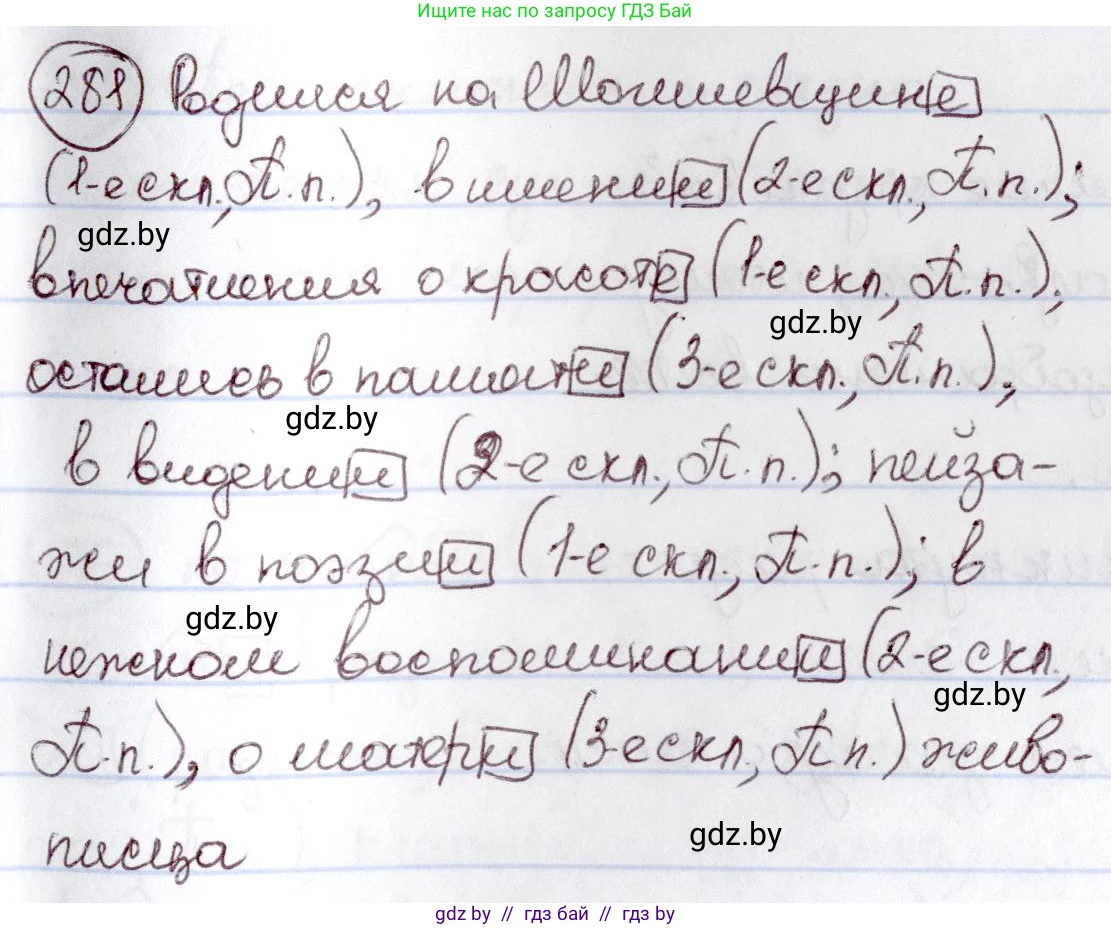 Ищите нас по запросу ГДЗ Бай
281 Родился на Могилевщине
(1-е скл., П.п.), в имении (2-е скл., П.п.);
gdz.by
впечатления о красоте (1-е скл., П.п.);
gdz.by
остались в памяти (3-е скл., П.п.),
gdz.by
в видении (2-е скл., П.п.); пейза-
жи в поэзии (1-е скл., П.п.); в
gdz.by
нежном воспоминании (2-е скл.,
gdz.by
П.п.), о матери (3-е скл., П.п.) живо-
писца
gdz.by
gdz by // гдз бай // гдз by